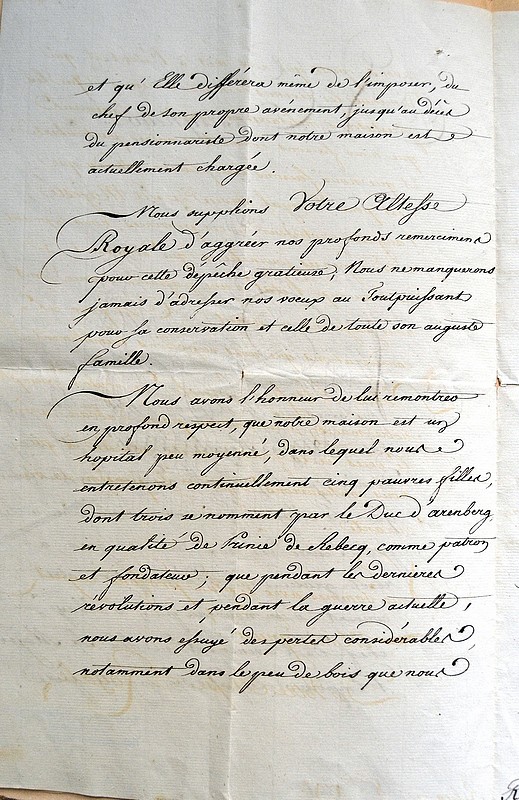 et qu'Elle différera même de l'imposer, du
chef de son propre avénement, jusqu'au décès
du pensionnariste dont notre maison est
actuellement chargée.
Nous supplions Votre Altesse
Royale d'aggréer nos profonds remercimens
pour cette dépêche gratieuse, Nous ne manquerons
jamais d'adresser nos voeux au Toutpuissant
pour sa conservation et celle de toute son auguste
famille.
Nous avons l'honneur de lui remontrer
en profond respect, que notre maison est un
hopital peu moyenné, dans lequel nous
entretenons continuellement cinq pauvres filles,
dont trois se nomment par le Duc d'arenberg
en qualité de Prince de Rebecq, comme patron
et fondateur; que pendant les dernieres
révolutions et pendant la guerre actuelle,
nous avons éssuyé des pertes considérables,
notamment dans le peu de bois que nous